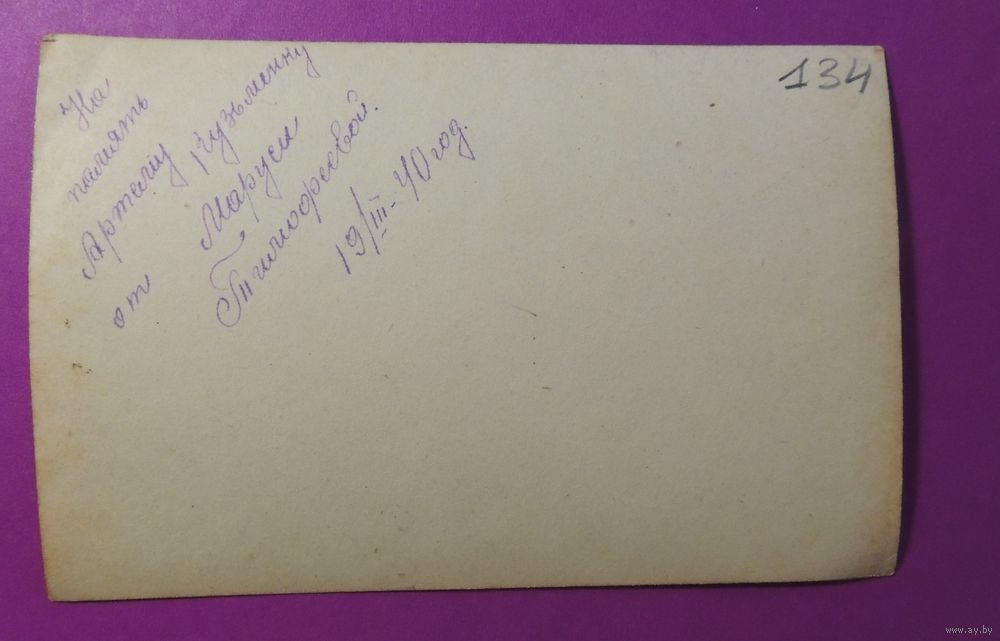 На
память
Артему Кузьменку
от Маруси
Тимофеевой.
19/III-40 год.
134
www.ay.by